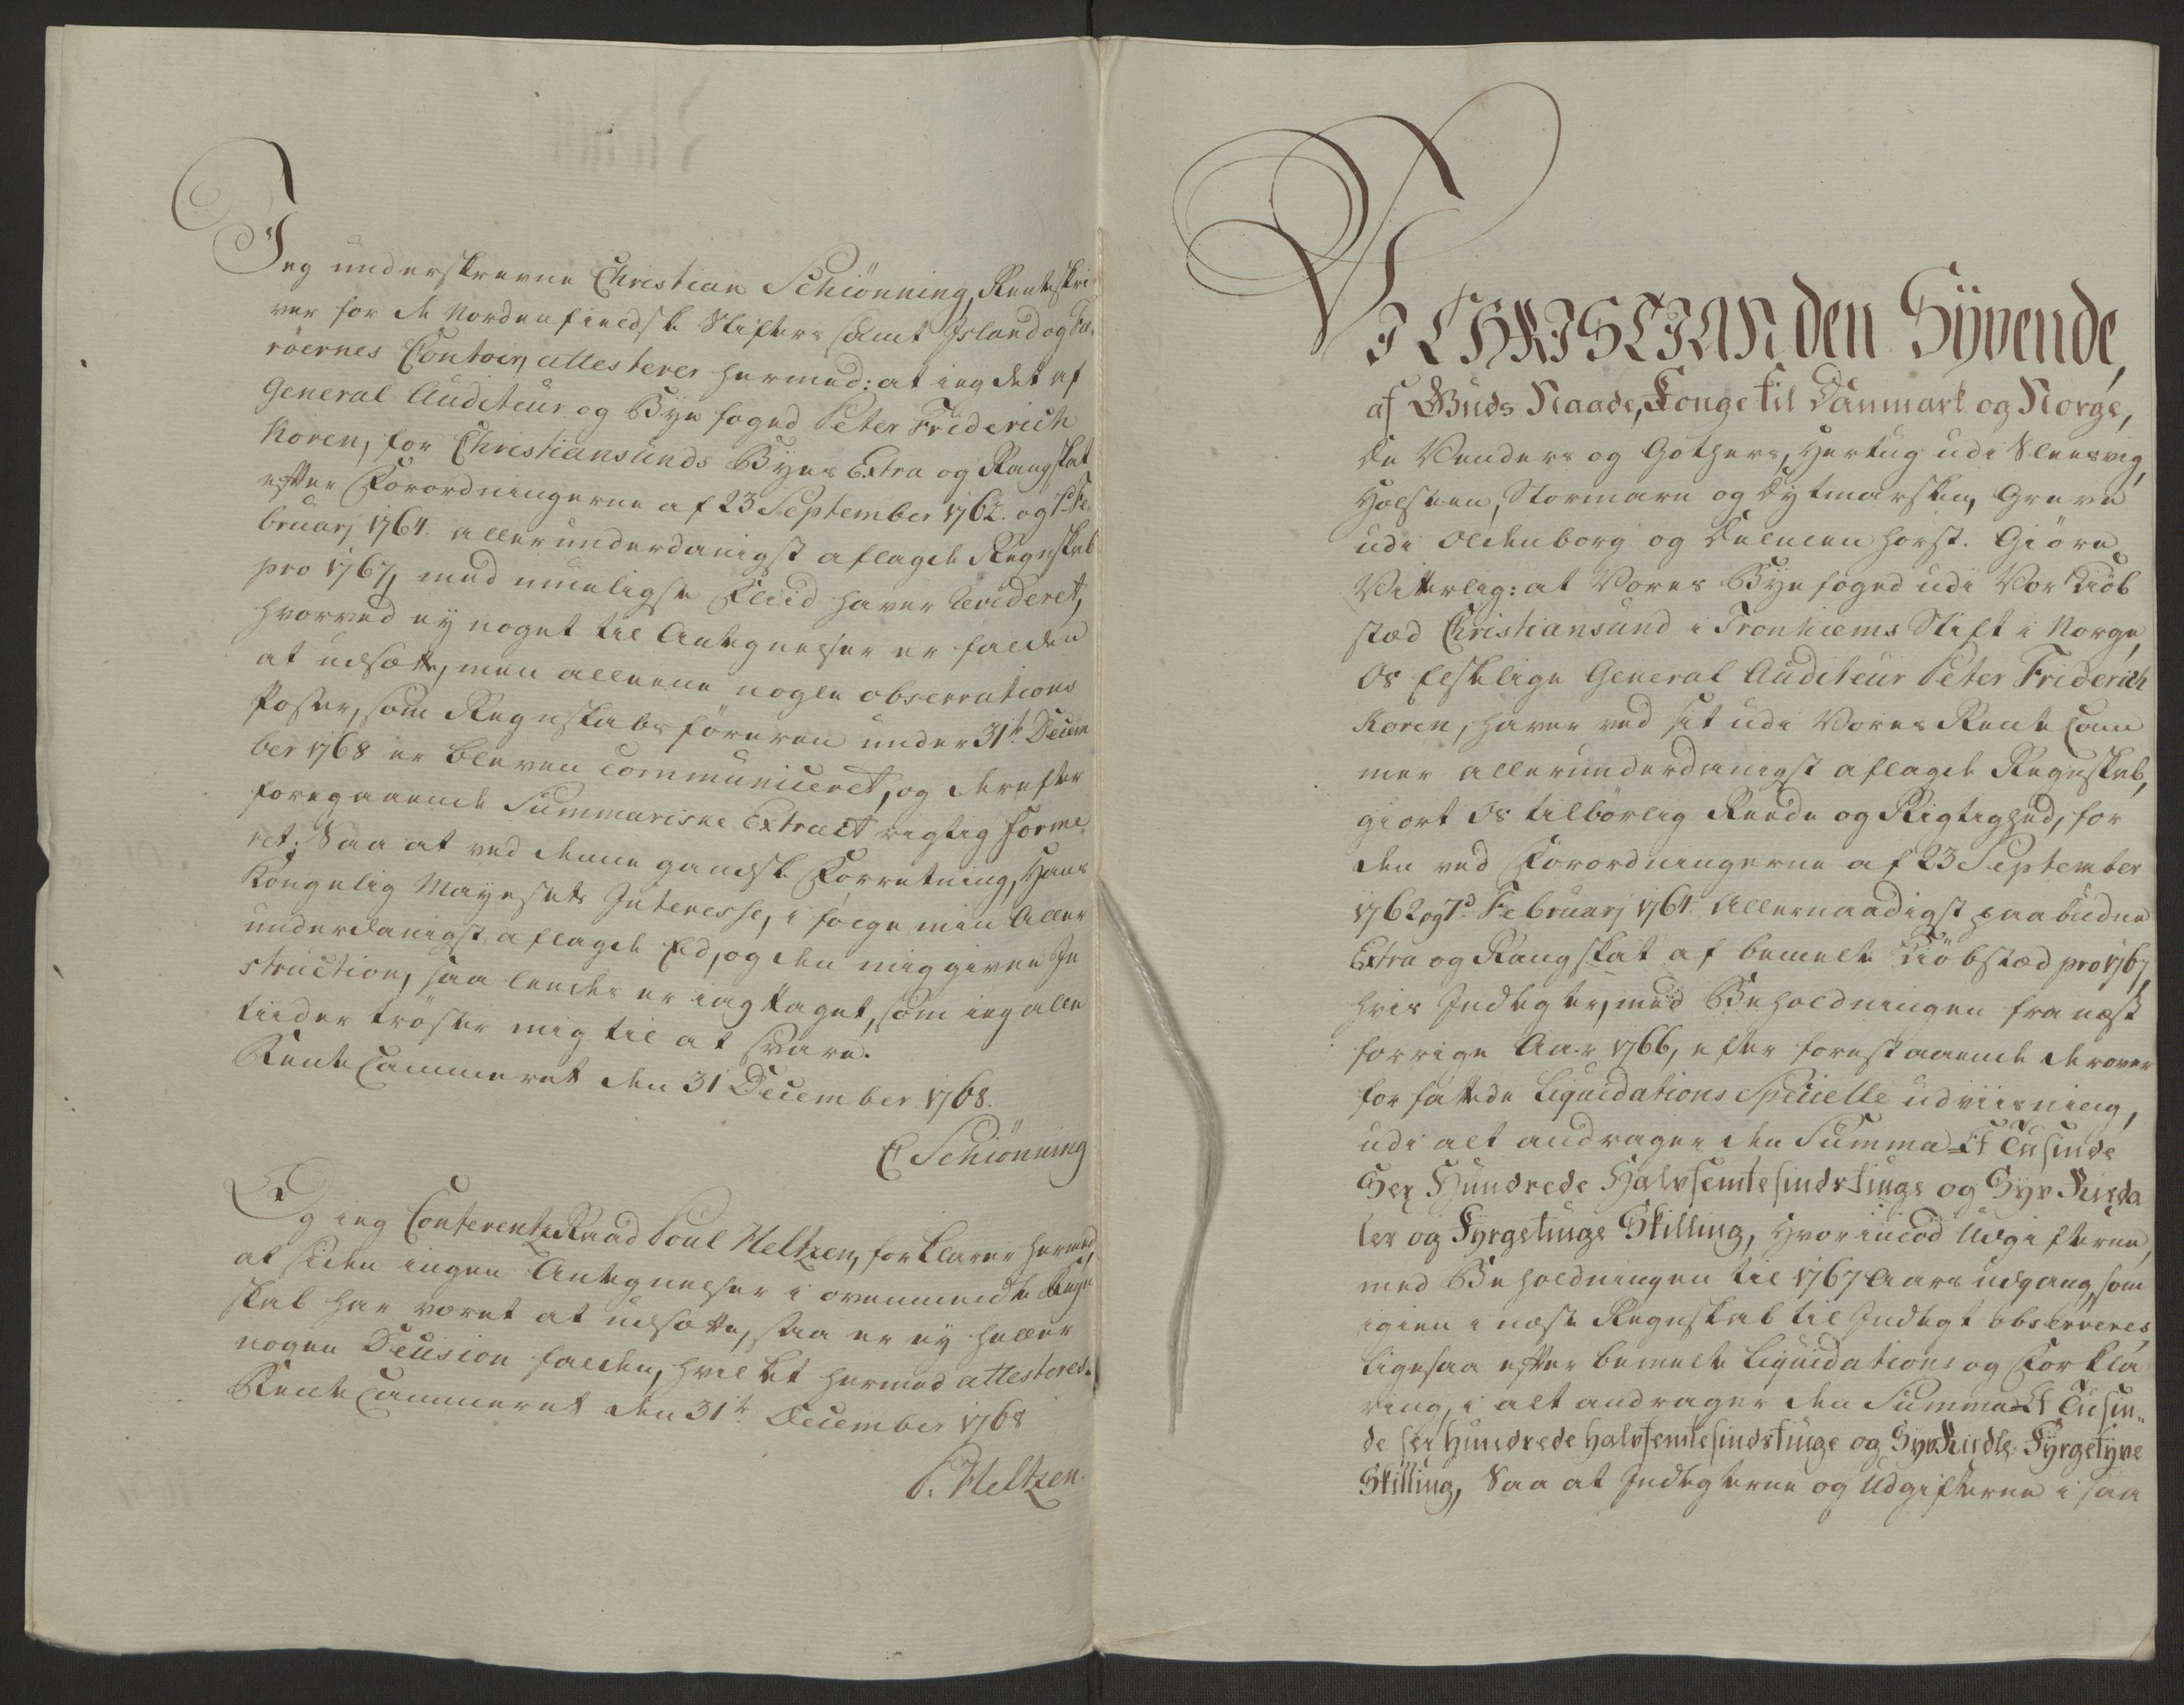 Jeg underskrevne Christian Schiönning, Renteskri-
ver for de Nordenfieldske Stifters samt Island og Fæ-
röernes Contoir, attesterer hermed: at ieg det af
General Auditeur og Bye foged Peter Friderich
Koren, for Christiansunds Byes Extra og Rangskat
efter Forordningerne af 23 September 1762. og 7d Fe-
bruarj 1764. allerunderdanigst aflagde Regnskab
pro 1767, med mueligste Fliid haver Revideret,
hvorved ey noget til Antegnelser er falden
at udsætte, men alleene nogle observations
Poster, som Regnskabsföreren under 31te Decem
ber 1768 er bleven communiceret, og derefter
foregaaende Summariske Extract rigtig forme-
ret; Saa at ved denne gandske Forretning, Hans
Kongelig Mayestets Interesse, i fölge min Aller
underdanigst aflagde Eed, og den mig given In
struction, saaledes er iagttaget, som ieg alle
tiider tröster mig til at svare.
Rente Cammeret den 31 December 1768.
C Schiönning
Og ieg Conferentz Raad Poul Heltzen, forklarer hermed,
at siden ingen Antegnelser i ovenmeldte Regn
skab har været at udsætte, saa er ey heller
nogen Decision falden, hvilket hermed attesteres.
Rente Cammeret den 31te December 1768
P. Heltzen.
VI CHRISTIAN den Syvende,
af Guds Naade, Konge til Danmark og Norge,
de Venders og Gothers, Hertug udi Slesvig,
Holsteen, Stormarn og Dytmarsken, Greve
udi Oldenborg og Delmenhorst. Giöre
Vitterlig: at Vores Byefoged udi Vor Kiöb
stæd Christiansund i Tronhiems Stift i Norge,
Os Elskelige General Auditeur Peter Friderich
Koren, haver ved sit udi Vores Rente Cam
mer allerunderdanigst aflagde Regnskab,
giort Os tilbörlig Reede og Rigtighed, for
den ved Forordningerne af 23 September
1762, og 7d Februarj 1764 Allernaadigst paabudne
Extra og Rangskat af bemelte Kiöbstæd pro 1767,
hvis Indtegter, med Beholdningen fra næst
forrige Aar 1766, efter forestaaende derover
forfattede Liquidations Specielle udviisning,
udi alt andrager den Summa Et Tusinde
Sex Hundrede Halvfemtesindstiuge og Syv Rixda
ler og Fyrgetiuge Skilling, Hvorimod Udgifterne,
med Beholdningen til 1767 Aars udgang, som
igien i næste Regnskab til Indtegt observeres,
ligesaa efter bemelte Liquidations og Forkla
ring, i alt andrager den Summa Et Tusin-
de sex Hundrede halvfemtesindstiuge og Syv Rixdlr. Fyrgetyve
Skilling, Saa at Indtegterne og Udgifterne i saa